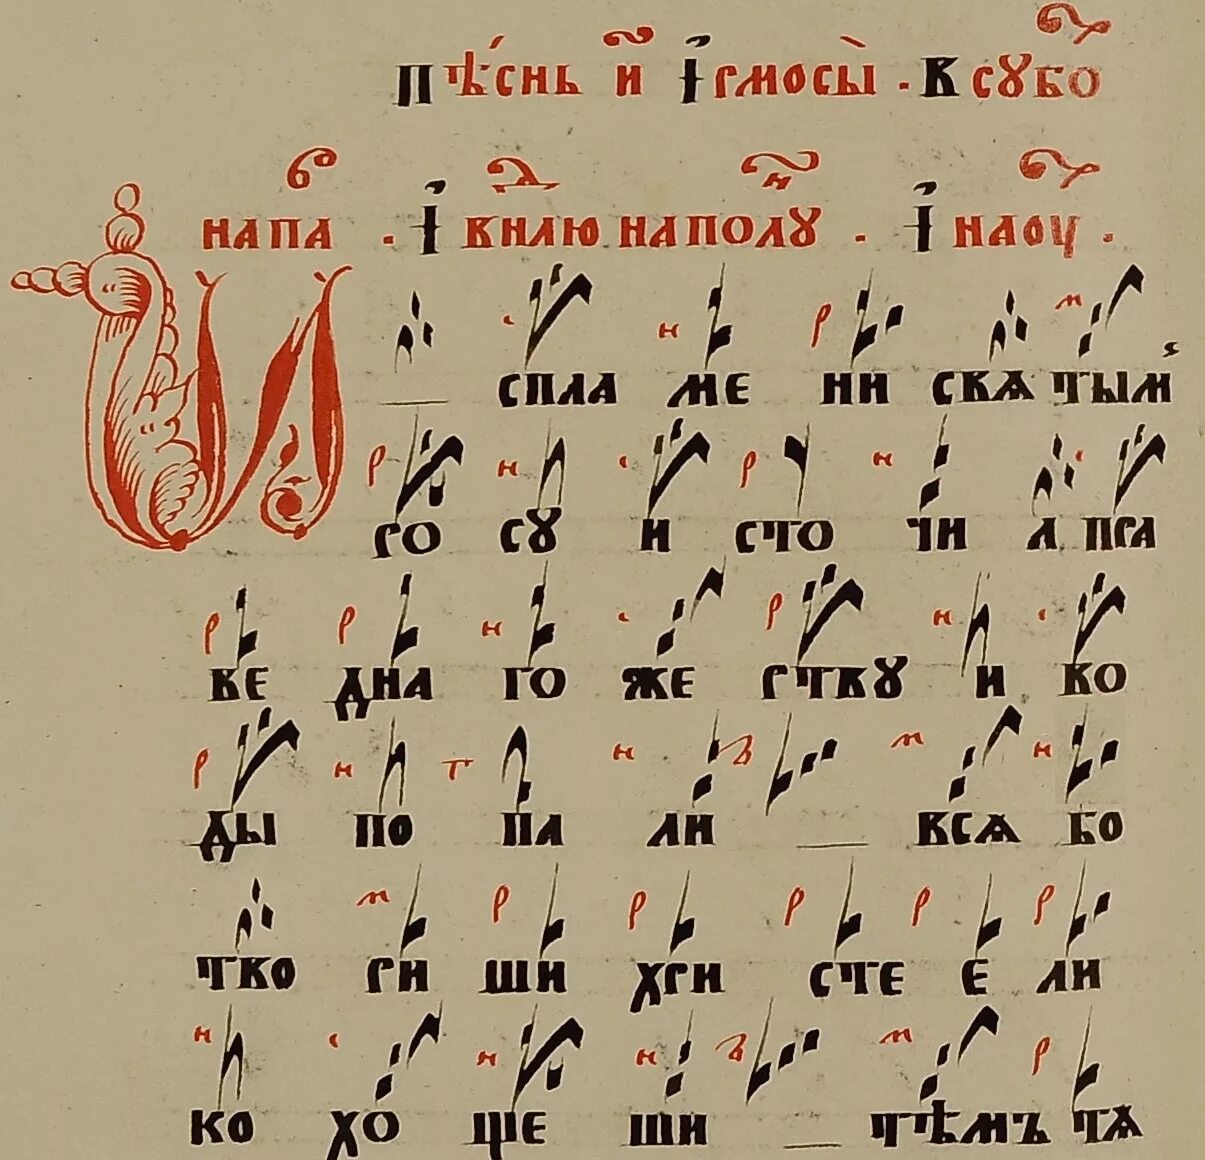 Пѣснь и҃ Ірмосы̀ . В сꙋбо
напа . І внлю наполꙋ . І наоу .
И спла ме ни свѧ тымъ
го сꙋ и сто чи л пра
ве дна го же ртвꙋ и во
ды по па ли всѧ бо
тво ри ши хри сте е ли
ко хо ще ши тѣмъ тѧ